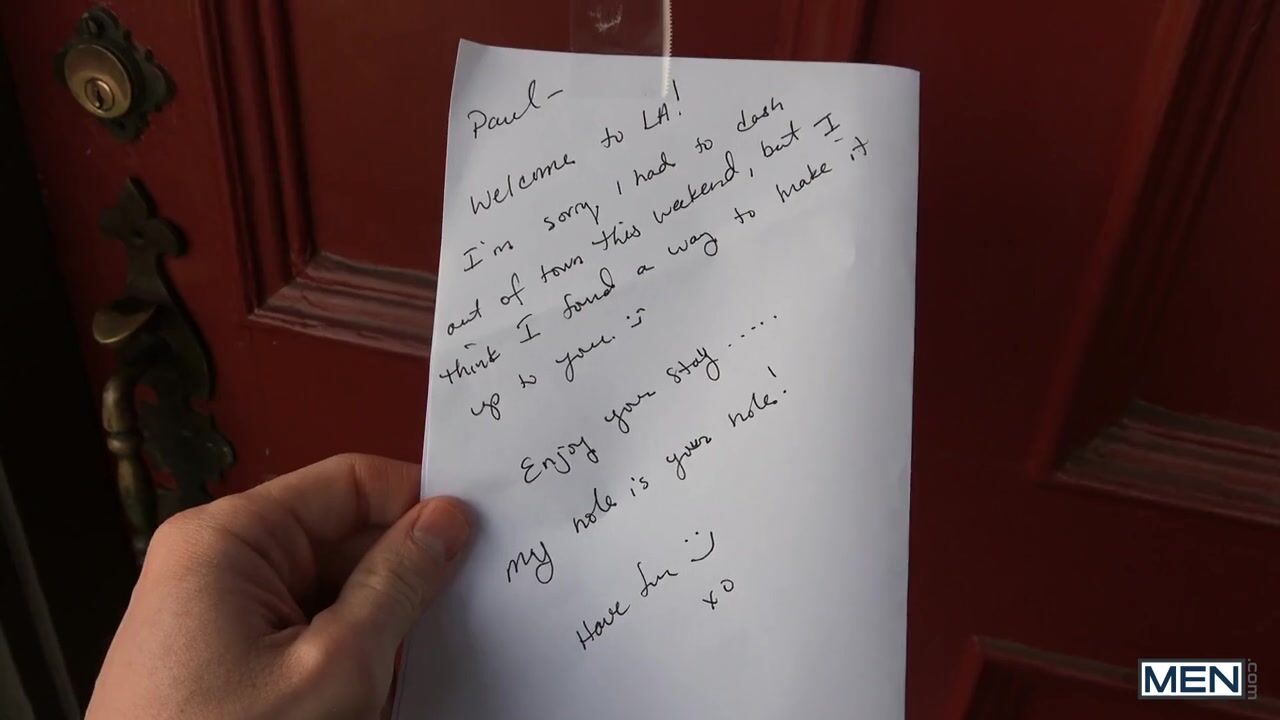 Paul-
Welcome to LA!
I'm sorry, I had to dash
out of town this weekend, but I
think I found a way to make it
up to you. :)
Enjoy your stay.....
my hole is your hole!
Have fun :)
xo
MEN.com